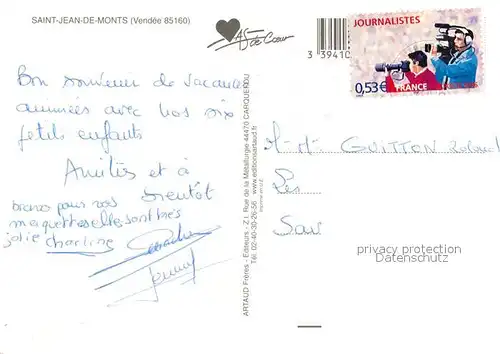 SAINT-JEAN-DE-MONTS (Vendée 85160)
de Cœur
3 39410
JOURNALISTES
0,53€ FRANCE
Bon souvenir de vacances
animées avec nos six
petits enfants
Amitiés et à
bientôt
bravo pour vos
maquettes elle sont très
jolie charline
ARTAUD Frères - Editeurs - Z.I. Rue de la Métallurge 44470 CARQUEFOU
Tél. 02-40-30-26-56 www.editionsartaud.fr
M-Mr GUITTON Roland
Les
privacy protection
Datenschutz